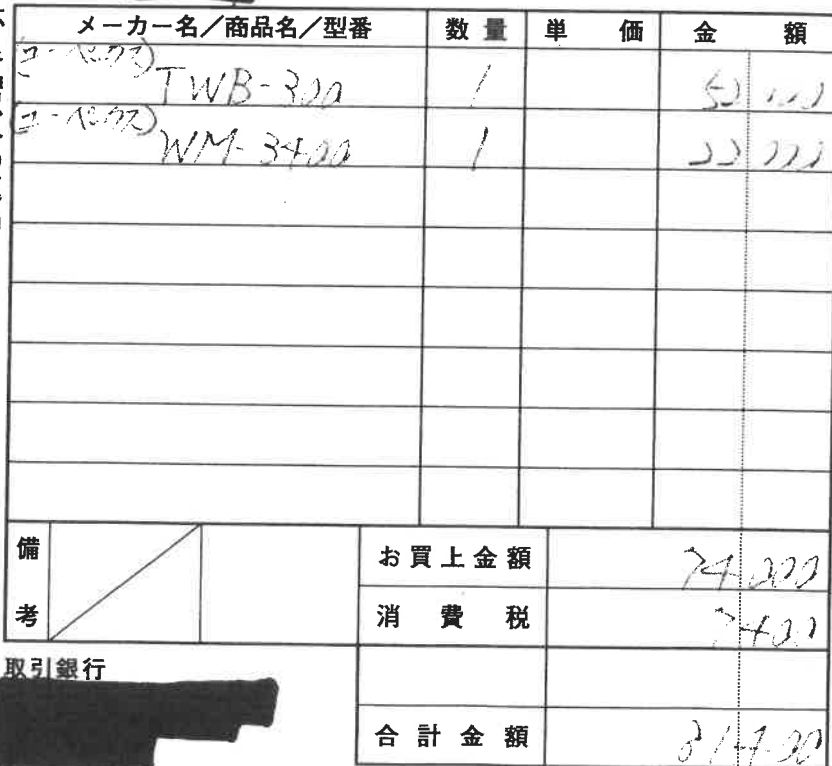 メーカー名／商品名／型番 数量 単価 金額
(コーペックス) TWB-300 1
(コーペックス) WM-3400 1
備考
お買上金額 74,000
消費税 7400
取引銀行
合計金額 81400